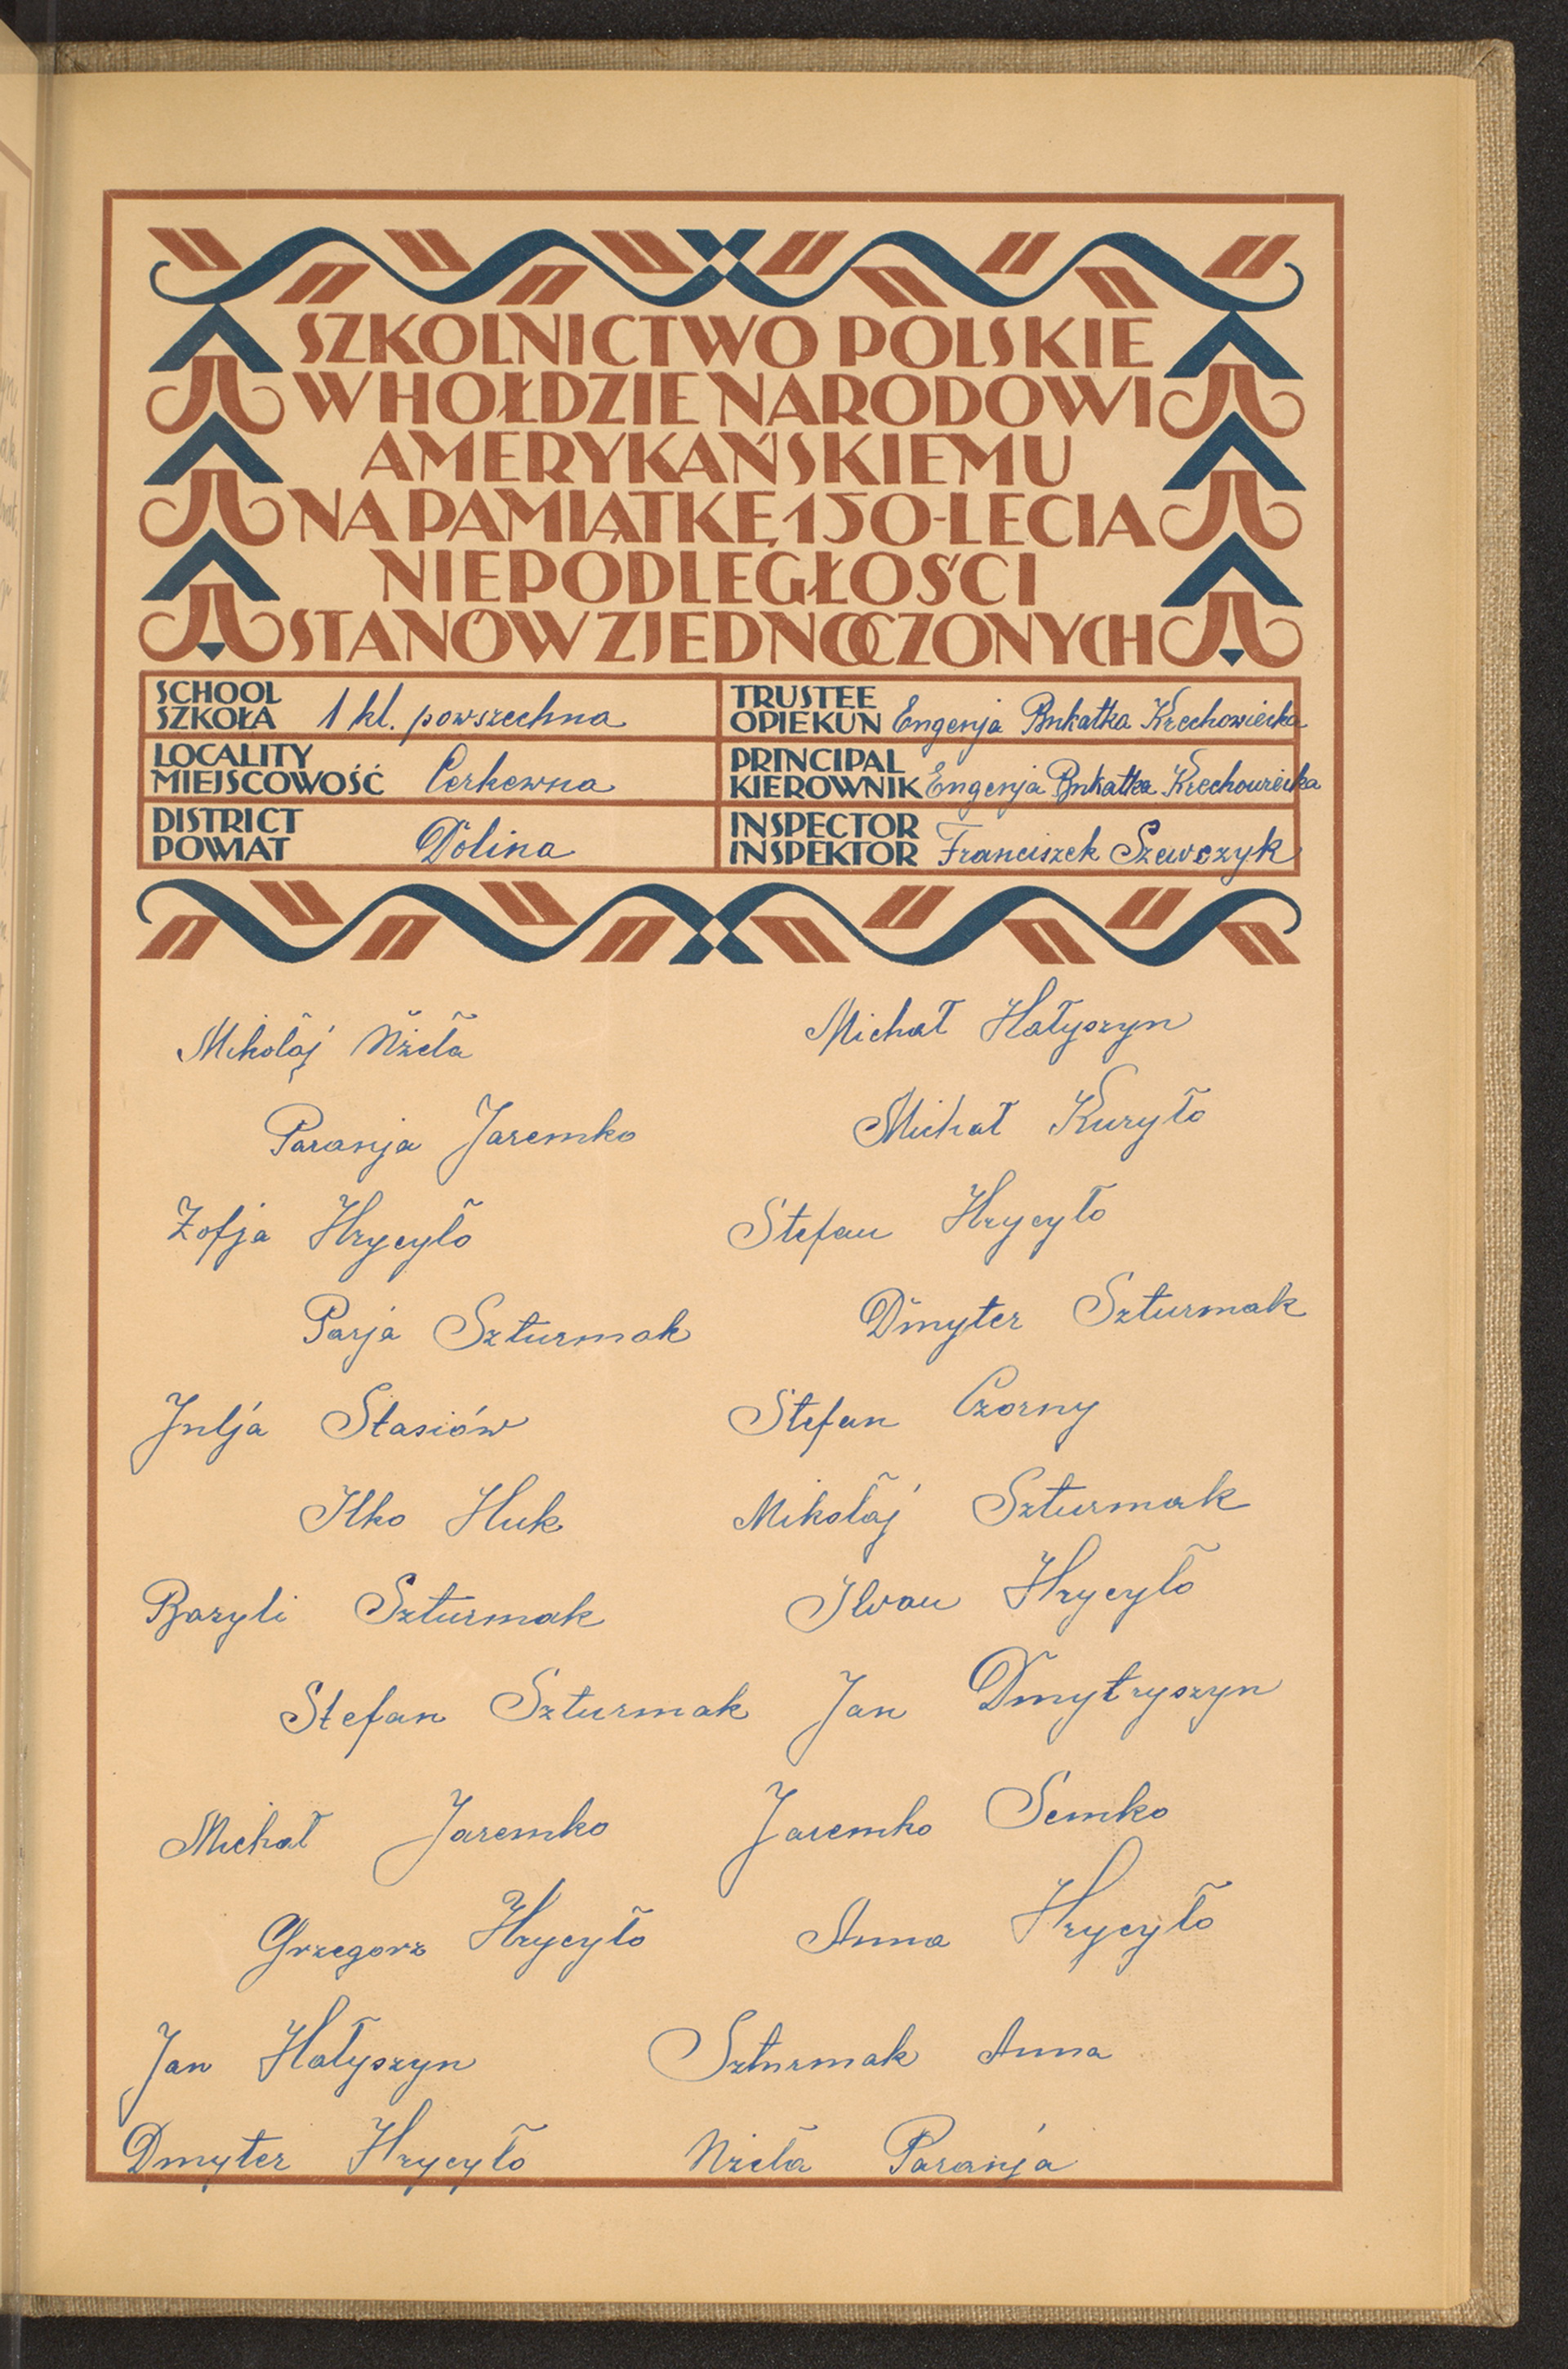 SZKOLNICTWO POLSKIE
W HOŁDZIE NARODOWI
AMERYKAŃSKIEMU
NA PAMIĄTKĘ 150-LECIA
NIEPODLEGŁOŚCI
STANÓW ZJEDNOCZONYCH
SCHOOL
SZKOŁA 1 kl. powszechna
TRUSTEE
OPIEKUN Eugenja Bukatka Krechowiecka
LOCALITY
MIEJSCOWOŚĆ Cerkewna
PRINCIPAL
KIEROWNIK Eugenja Bukatka Krechowiecka
DISTRICT
POWIAT Dolina
INSPECTOR
INSPEKTOR Franciszek Szewczyk
Mikołaj
Michał Hałyszyn
Paranja Jaremko
Michał Kuryło
Zofja Hrycyło
Stefan Hrycyło
Parja Szturmak
Dmyter Szturmak
Julja Stasiów
Stefan Czorny
Ilko Huk
Mikołaj Szturmak
Bazyli Szturmak
Iwan Hrycyło
Stefan Szturmak
Jan Dmytryszyn
Michał Jaremko
Jaremko Semko
Grzegorz Hrycyło
Anna Hrycyło
Jan Hałyszyn
Szturmak Anna
Dmyter Hrycyło
Paranja